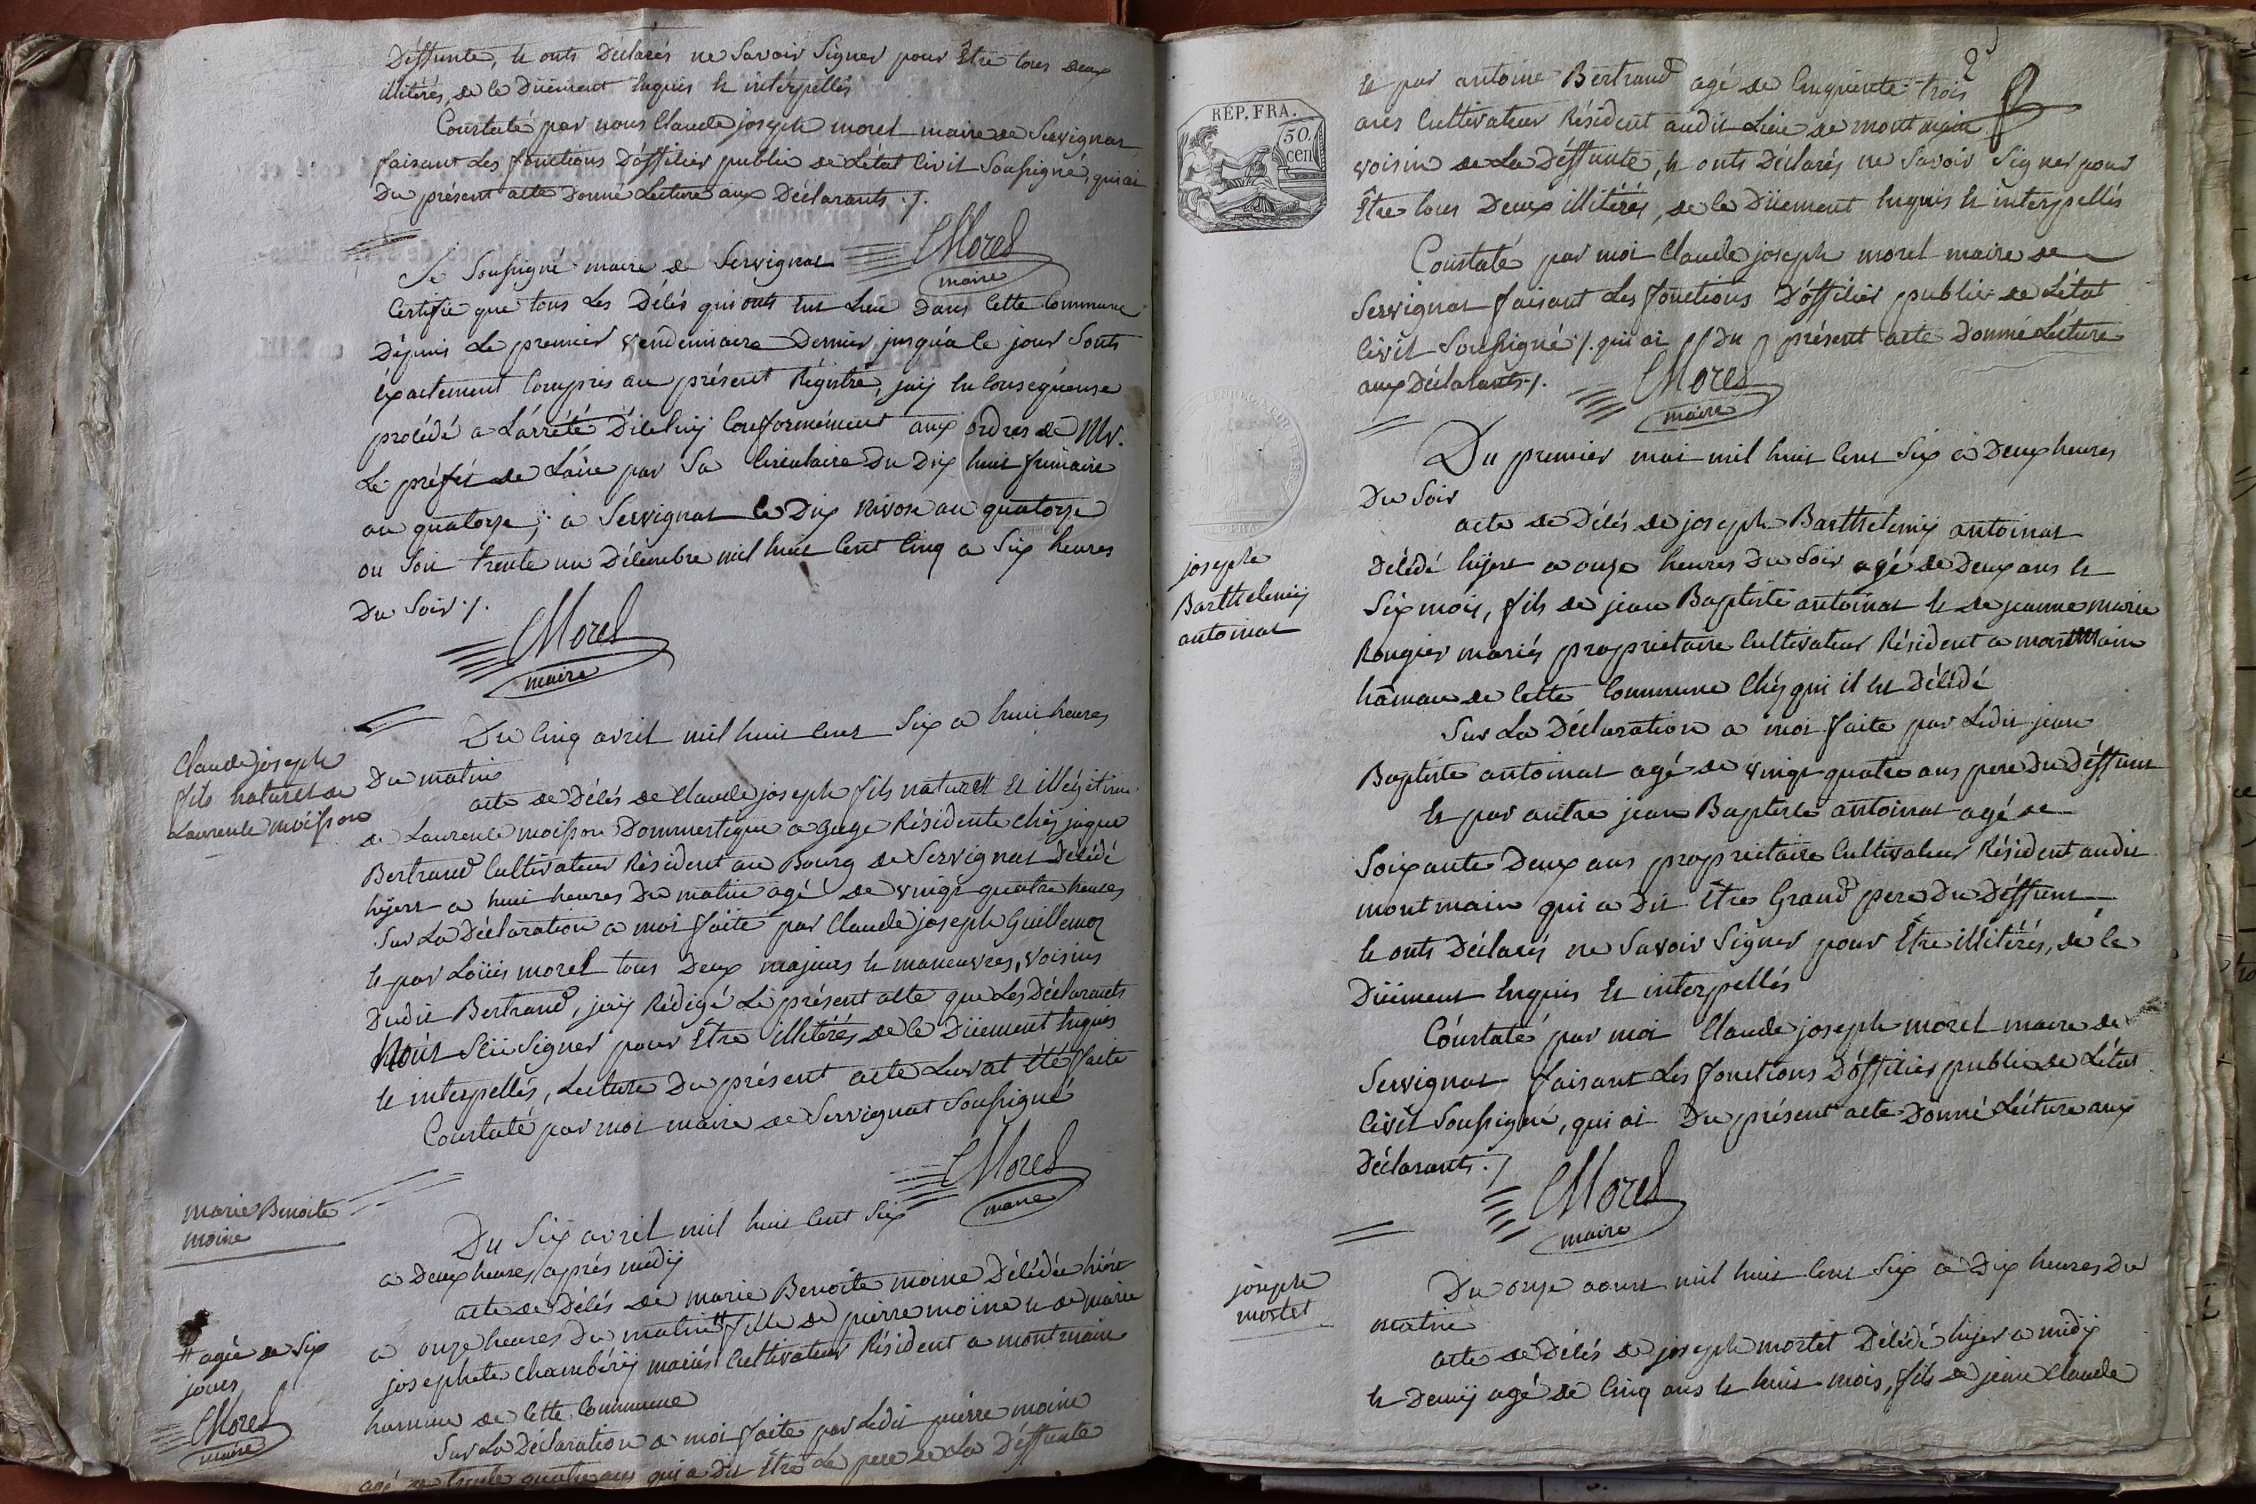 Déffunte, et onts Déclarés ne Savoir Signer pour Être tous deux
illitérés, de ce Düement Enquis et interpellés
Constaté par nous Claude joseph morel maire de Servignat
faisant Les fonctions D'officier public de L'état Civil Soussigné, qui ai
Du présent acte Donné Lecture aux Déclarants ./.
CMorel
maire
Je Soussigné maire de Servignat
Certifie que tous Les Décés qui onts Eut Lieu Dans Cette Commune
Dépuis Le premier vendemiaire Dernier jusqu'a Ce jour Sonts
éxactement Compris au présent Régistre, jaij En Consequense
procédé a L'arrété D'iceluij Conformément aux ordres de Mr.
Le préfét de L'ain par Sa Circulaire Du Dix huit frimaire
an quatorze; a Servignat le Dix Nivose an quatorze
ou Soit trente un Décembre mil huit Cent Cinq a Six heures
Du Soir ./.
CMorel
maire
Claude joseph
fils naturel de
Laurence moisson
Du Cinq avril mil huit Cent Six a huit heures
Du matin
acte de Décés de Claude joseph fils naturell Et illégitime
de Laurence moisson Dommestique a gage Résidente Chés jaque
Bertrand Cultivateur Résident au Bourg de Servignat Décédé
hijert a huit heures Du matin agé de vingt quatre heures
Sur La Déclaration a moi faite par Claude joseph Guillemoz
Et par Loüis morel tous Deux majeurs Et maneuvres, voisins
Dudit Bertrand, jaij Rédigé Le présent acte que Les Déclarants
N'ont Sçü Signer pour Être illitérés de ce Düement Enquis
Et interpellés, Lecture Du présent acte Leur at été faite
Constaté par moi maire de Servignat Soussigné
CMorel
maire
marie Benoite
moine
Du Six avril mil huit Cent Six
a Deux heures aprés midij
acte de Décés de marie Benoite moine Décédée hiért
a onze heures Du matin # fille de pierre moine Et de marie
josephete Chambérij mariés Cultivateur Résident a montmain
hameau de Cette Commune
# agée de Six
jours
CMorel
maire
Sur La Déclaration a moi faite par Ledit piérre moine
agé de trente quatre ans qui a Dit Être Le pere de La Déffunte
2
REP. FRA.
50.
cen
Et par antoine Bertrand agé de Cinquente trois
ans Cultivateur Résident audit Lieu de montmain
voisin de La Déffunte, Et onts Déclarés ne Savoir Signer pour
Être tous Deux illitérés, de ce Düement Enquis Et interpellés
Constaté par moi Claude joseph morel maire de
Servignat faisant Les fonctions D'officier public de L'état
Civil Soussigné ./. qui ai Du présent acte Donné Lecture
aux Déclarants ./.
CMorel
maire
Du premier mai mil huit Cent Six a Deux heures
Du Soir
joseph
Barthelemij
antoinat
acte de Décés de joseph Barthelemij antoinat
Décédé hijert a onze heures Du Soir agé de Deux ans Et
Six mois, fils de jean Baptiste antoinat Et de jeanne marie
Rongier mariés propriétaire Cultivateur Résident a montmain
hâmau de Cette Commune Chés qui il Est Décédé
Sur La Déclaration a moi faite par Ledit jean
Baptiste antoinat agé de vingt quatre ans pere Du Déffunt
Et par autre jean Baptiste antoinat agé de
Soixante Deux ans propriétaire Cultivateur Résident audit
montmain qui a Dit Être Grand pere Du Déffunt
Et onts Déclarés ne Savoir Signer pour Être illitérés, de ce
Düement Enquis Et interpellés
Constaté par moi Claude joseph morel maire de
Servignat faisant Les fonctions D'officier public de L'état
Civil Soussigné, qui ai Du présent acte Donné Lécture aux
Déclarants ./.
CMorel
maire
joseph
mortet
Du onze aoust mil huit Cent Six a Dix heures Du
matin
acte de Décés de joseph mortet Décédé hijer a midij
Et Demij agé de Cinq ans Et huit mois, fils de jean Claude